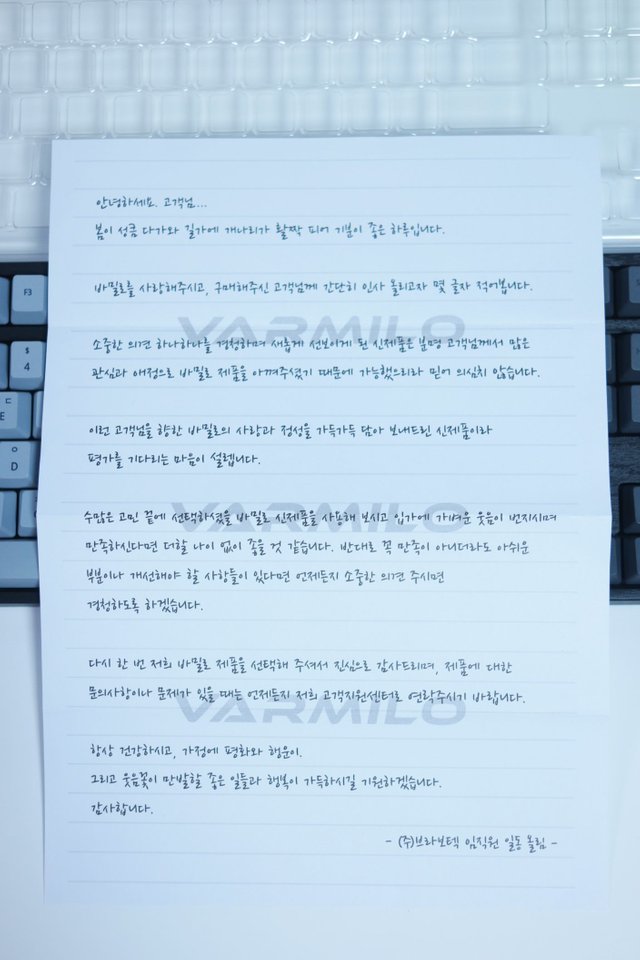 안녕하세요. 고객님...
봄이 성큼 다가와 길가에 개나리가 활짝 피어 기분이 좋은 하루입니다.
바밀로를 사랑해주시고, 구매해주신 고객님께 간단히 인사 올리고자 몇 글자 적어봅니다.
VARMILO
소중한 의견 하나하나를 경청하며 새롭게 선보이게 된 신제품은 분명 고객님께서 많은
관심과 애정으로 바밀로 제품을 아껴주셨기 때문에 가능했으리라 믿어 의심치 않습니다.
이런 고객님을 향한 바밀로의 사랑과 정성을 가득가득 담아 보내드린 신제품이라
평가를 기다리는 마음이 설렙니다.
VARMILO
수많은 고민 끝에 선택하셨을 바밀로 신제품을 사용해 보시고 입가에 가벼운 웃음이 번지시며
만족하신다면 더할 나위 없이 좋을 것 같습니다. 반대로 꼭 만족이 아니더라도 아쉬운
부분이나 개선해야 할 사항들이 있다면 언제든지 소중한 의견 주시면
경청하도록 하겠습니다.
다시 한 번 저희 바밀로 제품을 선택해 주셔서 진심으로 감사드리며, 제품에 대한
문의사항이나 문제가 있을 때는 언제든지 저희 고객지원센터로 연락주시기 바랍니다.
VARMILO
항상 건강하시고, 가정에 평화와 행운이.
그리고 웃음꽃이 만발할 좋은 일들과 행복이 가득하시길 기원하겠습니다.
감사합니다.
- (주)브라보텍 임직원 일동 올림 -
F3
$
4
ㄷ
E
ㅇ
D